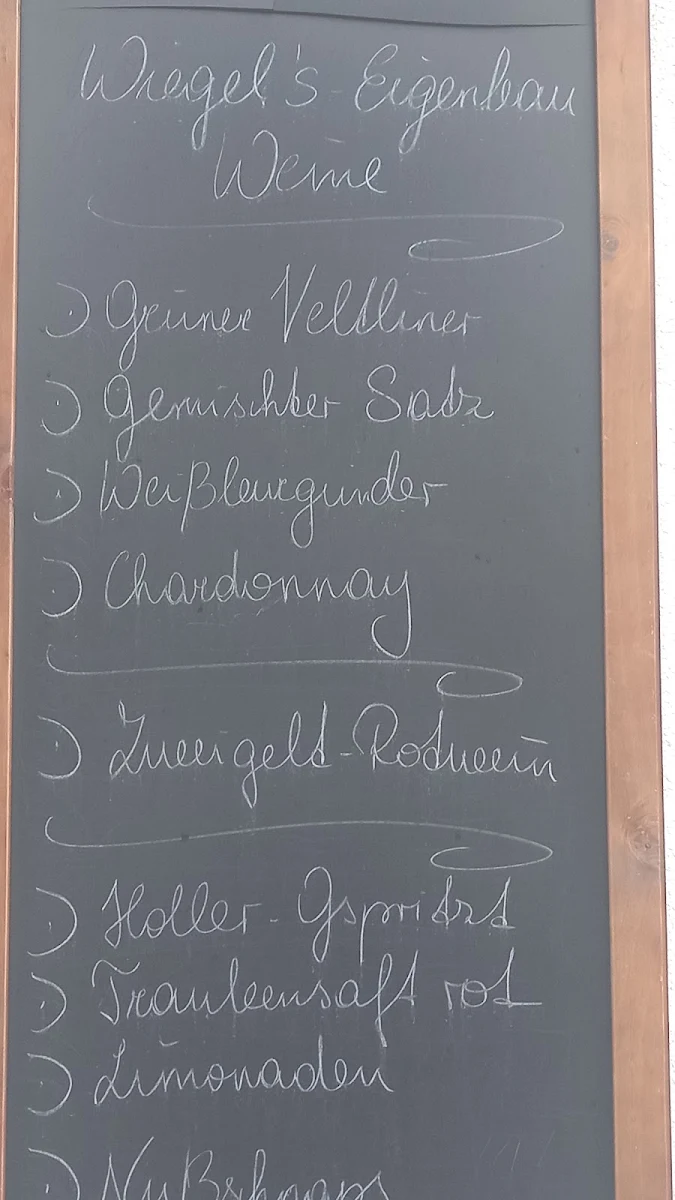 Wiegel's Eigenbau
Weine
Grüner Veltliner
Gemischter Satz
Weißburgunder
Chardonnay
Zweigelt-Rotwein
Holler-Gspritzt
Traubensaft rot
Limonaden
Nußschnaps